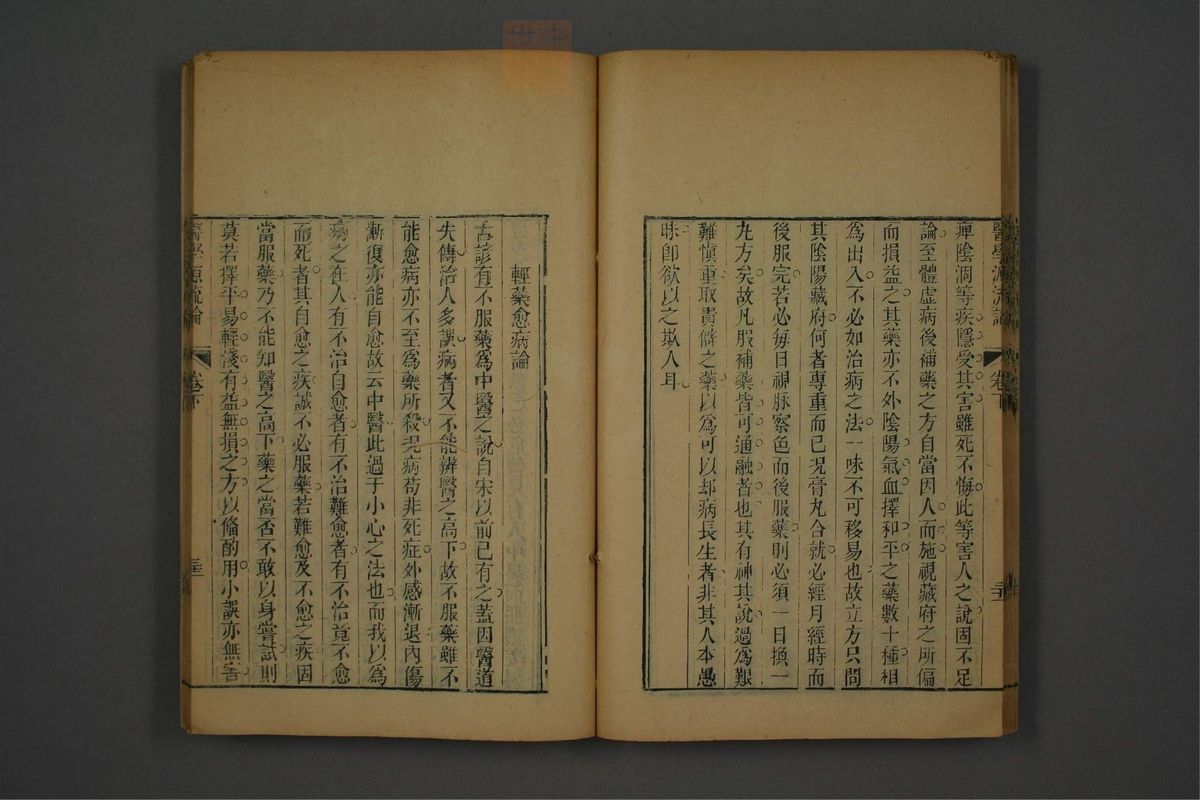 醫學源流論 卷下
痺陰涸等疾隱受其害雖死不悔此等害人之說固不足
論至體虛病後補藥之方自當因人而施視藏府之所偏
而損益之其藥亦不外陰陽氣血擇和平之藥數十種相
爲出入不必如治病之法一味不可移易也故立方只問
其陰陽藏府何者專重而已況膏丸合就必經月經時而
後服完若必每日視脉察色而後服藥則必須一日換一
九方矣故凡服補藥皆可通融者也其有神其說過爲艱
難愼重取貴僻之藥以爲可以却病長生者非其人本愚
昧卽欲以之欺人耳
輕藥愈病論
古諺有不服藥爲中醫之說自宋以前已有之蓋因醫道
失傳治人多誤病者又不能辨醫之高下故不服藥雖不
能愈病亦不至爲藥所殺況病苟非死症外感漸退內傷
漸復亦能自愈故云中醫此過于小心之法也而我以爲
病之在人有不治自愈者有不治難愈者有不治竟不愈
而死者其自愈之疾誠不必服藥若難愈及不愈之疾固
當服藥乃不能知醫之高下藥之當否不敢以身嘗試則
莫若擇平易輕淺有益無損之方以備酌用小誤亦無害
醫學源流論 卷下